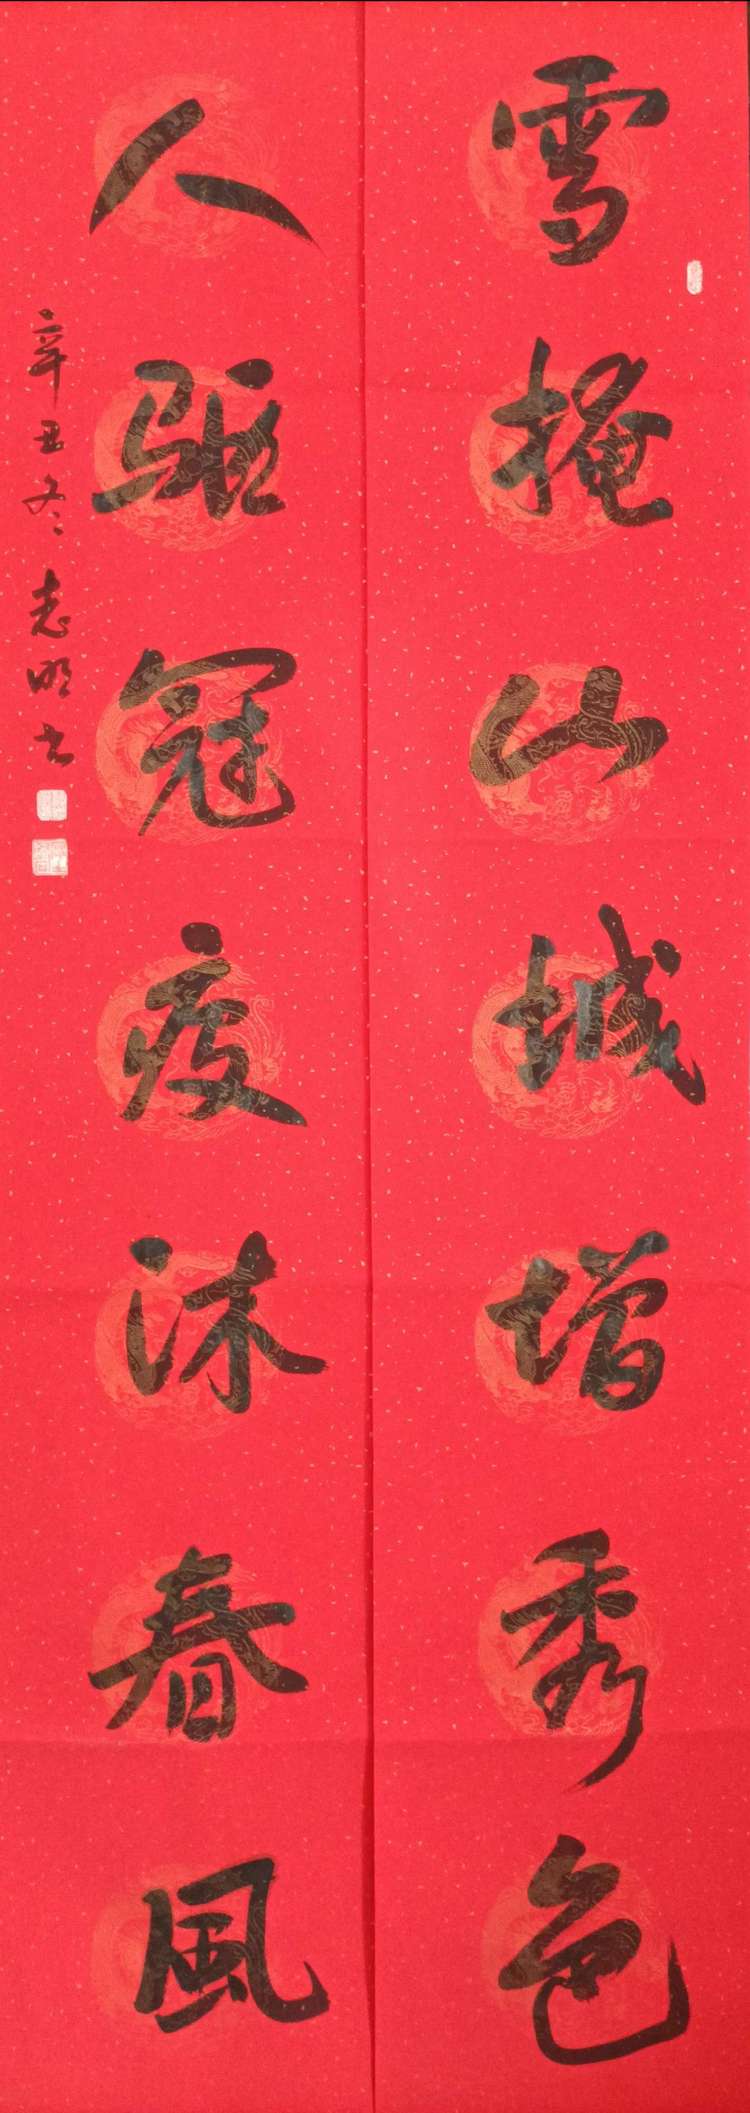 雪掩山城增秀色
人驱冠疫沐春風
辛丑冬志明书